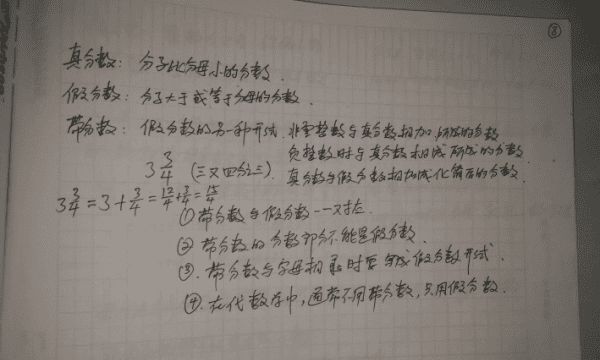 ⑧
真分数：分子比分母小的分数.
假分数：分子大于或等于分母的分数.
带分数：假分数的另一种形式.非零整数与真分数相加所成的分数
负整数时与真分数相减所成的分数.
3 3/4 (三又四分之三).真分数与假分数相加减化简后的分数.
3 3/4 = 3 + 3/4 = 12/4 + 3/4 = 15/4
①带分数与假分数一一对应
②带分数的分数部分不能是假分数.
③.带分数与字母相乘时要写成假分数形式.
④.在代数学中,通常不用带分数,只用假分数.